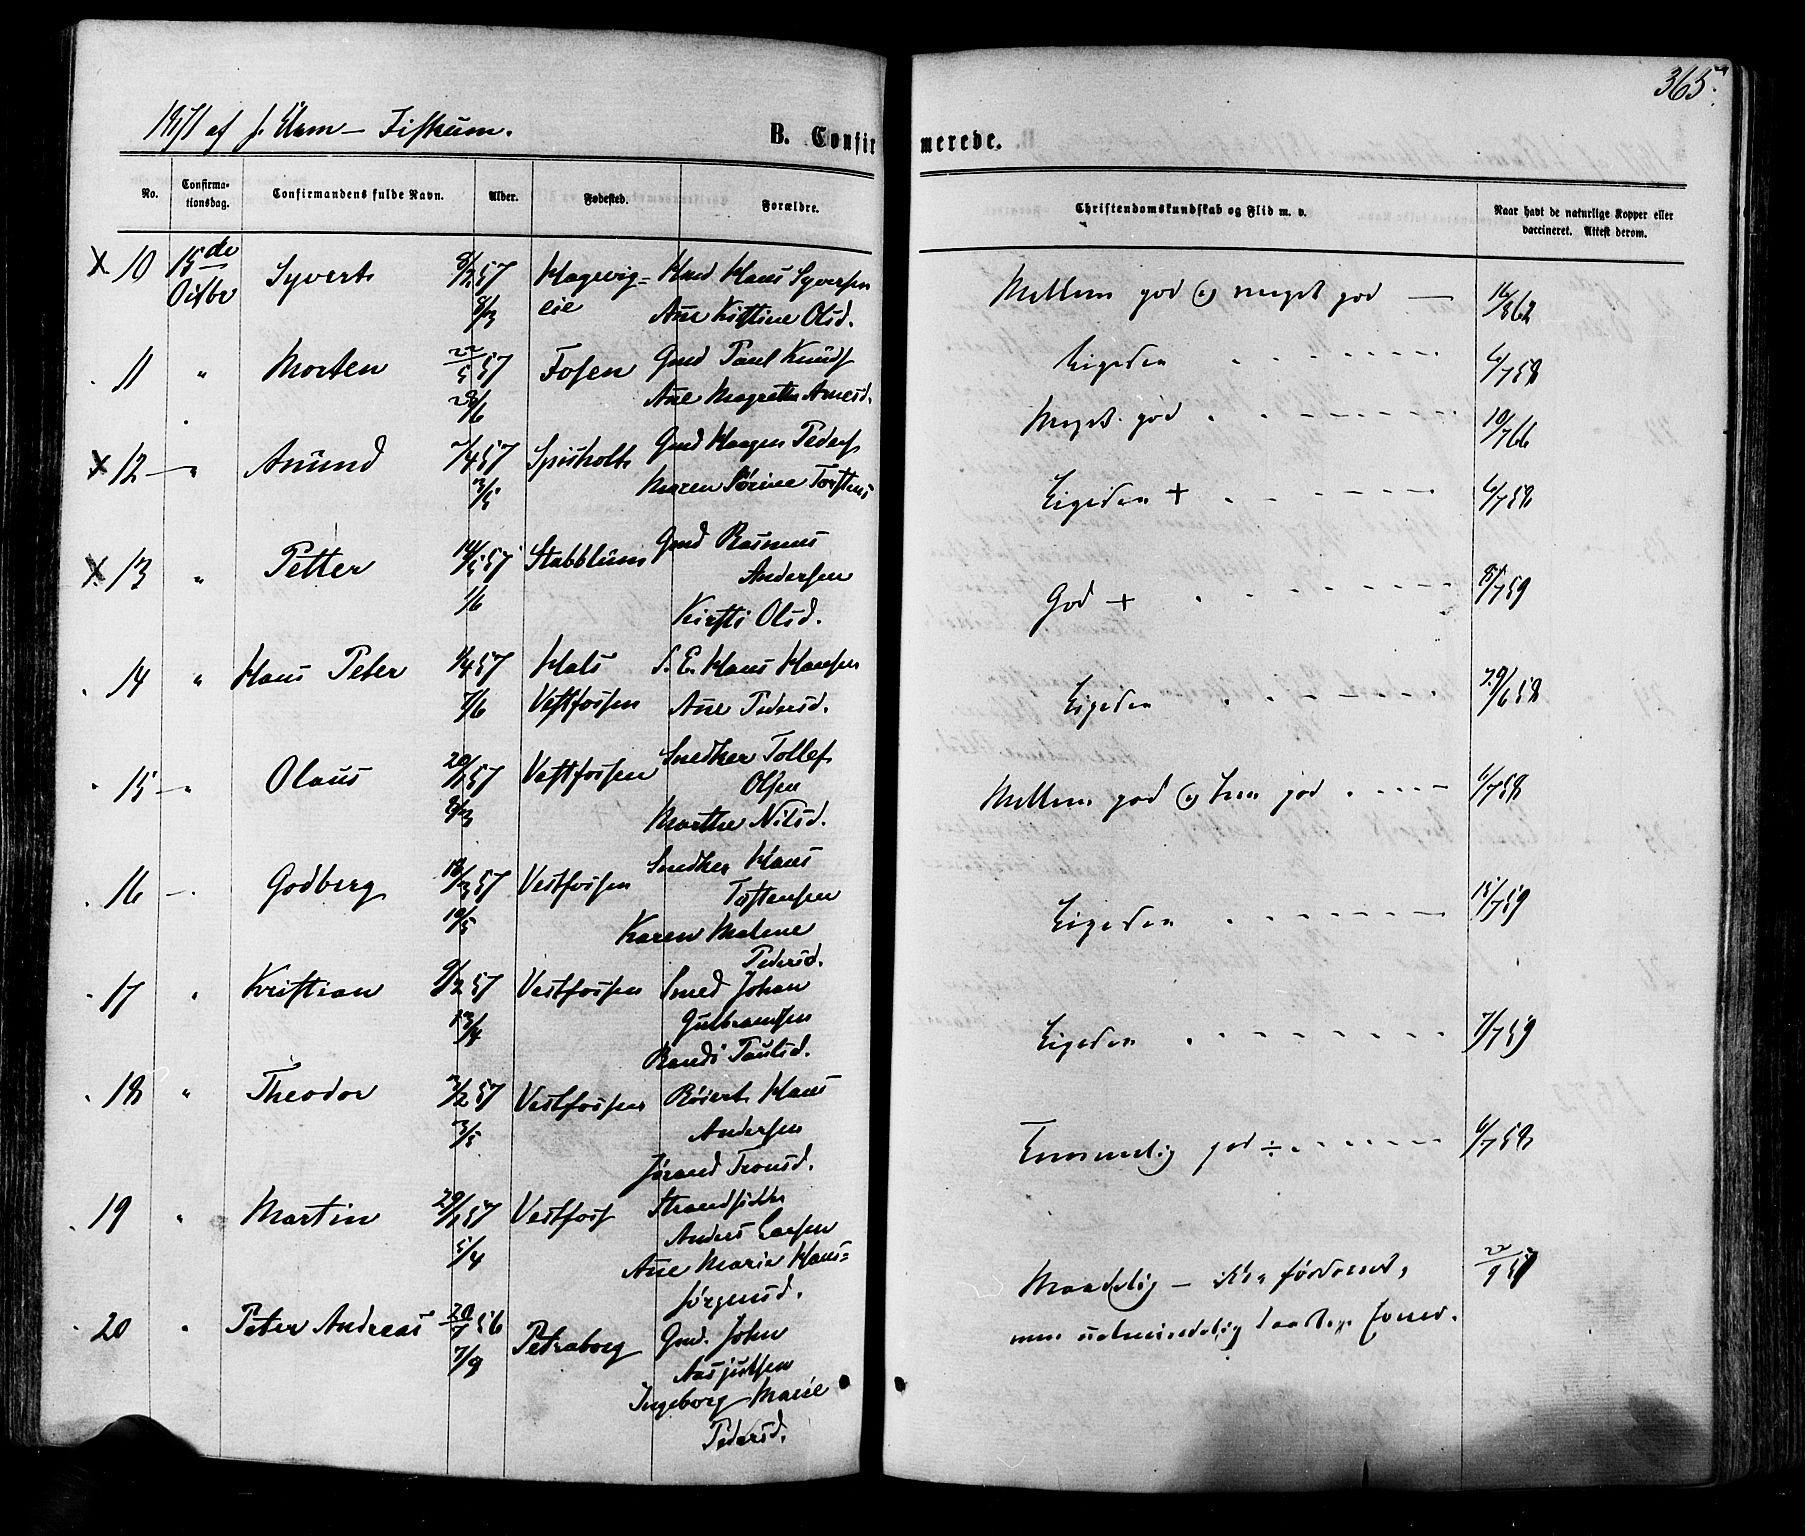 365.
1871 af J. Urm – Fiskum.
B. Confirmerede.
No. Confirmationsdag. Confirmandens fulde Navn. Alder. Fødested. Forældre. Christendomskundskab og Flid m. v. Naar havt de naturlige Kopper eller vaccineret. Attest derom.
X 10 15de Octbr Syvert 8/2 57 8/3 Hagevig-eie Hmd Hans Syversen
Ane Kistine Olsd. Mellem god og meget god — 16/8 62
11 " Morten 22/5 57 28/6 Fosen Gmd Paul Knuds
Ane Magrethe Arnesd. Ligeden 6/7 58
X 12 — " Anund 7/4 57 3/5 Spisholt Gmd Haagen Peders
Maren Sørine Torstens Meget god 10/7 66
X 13 " Petter 14/5 57 1/6 Stabblum Gmd Rasmus
Andersen
Kirsti Olsd. Ligeden + 6/7 58
14 " Hans Peter 1/4 57 7/6 Hals
Vestfossen S. E. Hans Hansen
Ane Pedersd. God + 8/7 59
15 — " Olaus 20/1 57 8/3 Vestfossen Snedker Tollef
Olsen
Marthe Nilsd. Ligeden 29/6 58
16 — " Godberg 18/3 57 10/5 Vestfossen Snedker Hans
Tostensen
Karen Malene
Pedersd. Mellem god og hen god 6/7 58
17 " Kristian 9/2 57 13/4 Vestfossen Smed Johan
Gulbrandsen
Randi Paulsd. Ligeden 15/7 59
18 " Theodor 3/2 57 3/5 Vestfossen Røiert Hans
Andersen
Jørand Tronsd. Ligeden 7/7 59
19 " Martin 29/1 57 5/4 Vestfoss Strandsidder
Anders Larsen
Ane Marie Hans-
Jørgensd. Temmelig god ÷ 6/7 58
20 " Peter Andreas 20/7 56 7/9 Petraborg Gmd. John
Ingeborg Marie
Pedersd. Maadelig — ikke
men ualmindelig